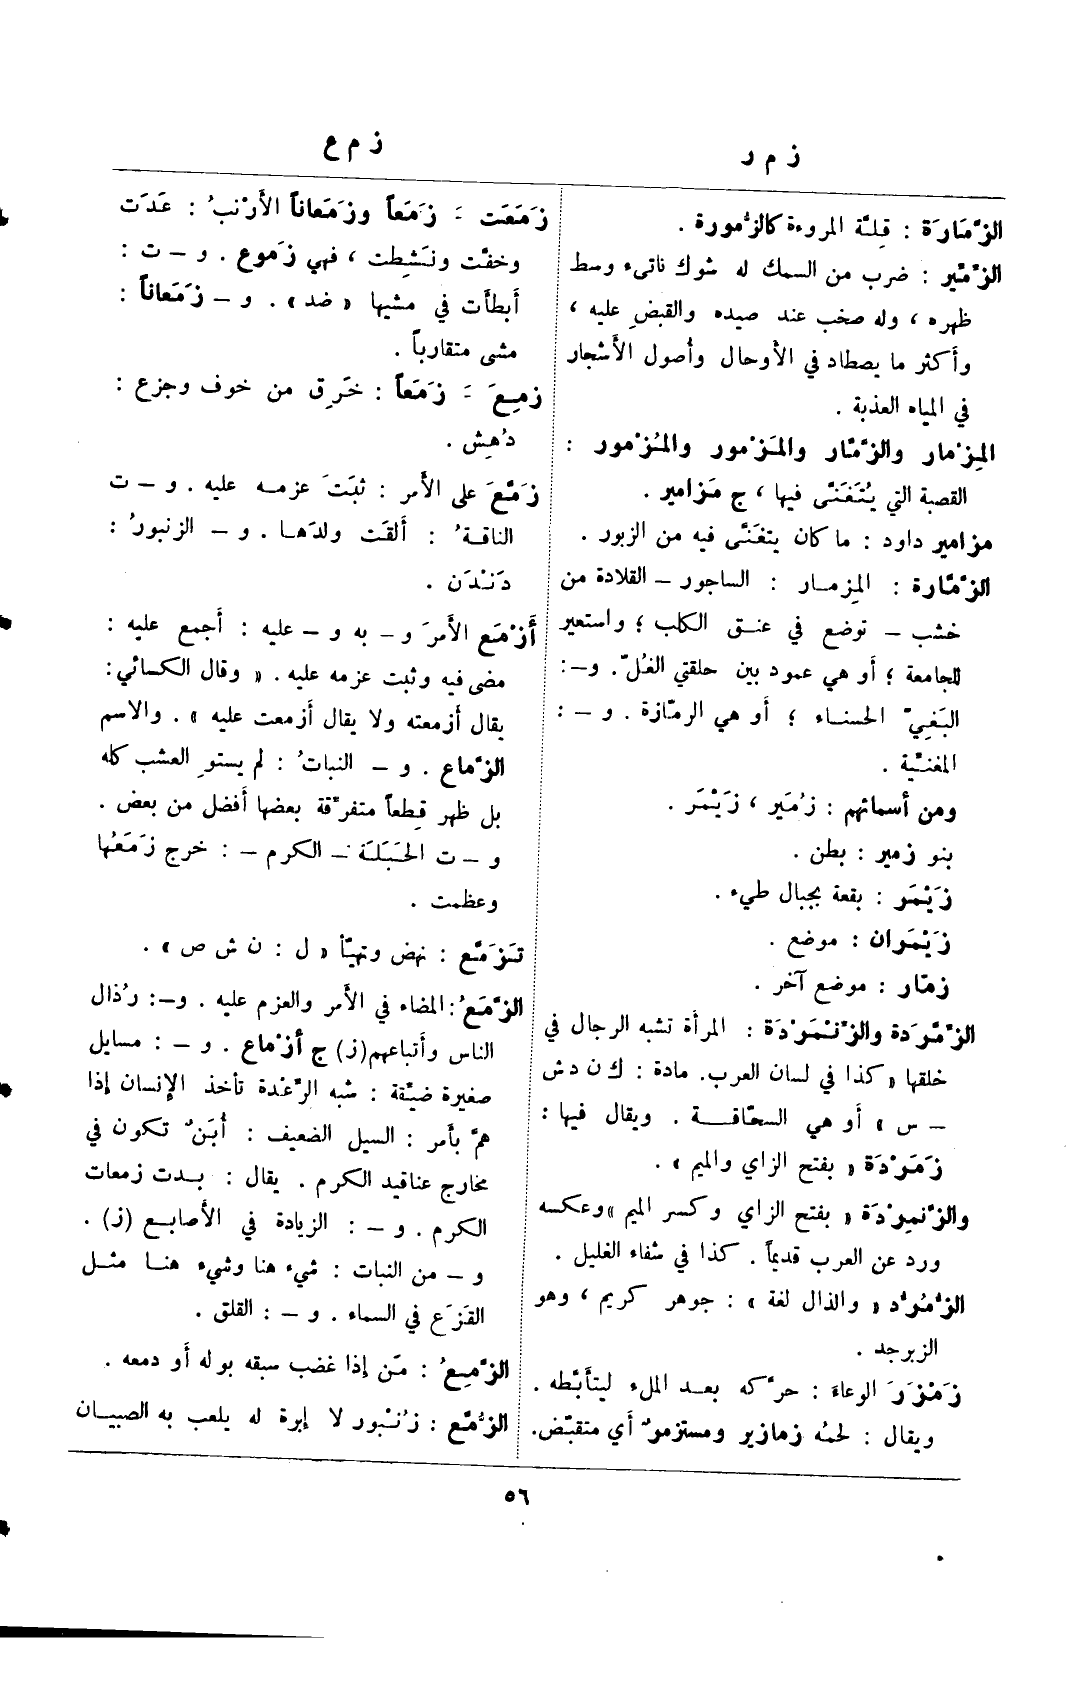 ز م ر
الزَّمَارَة : قِلّة المروءة كالزُّمورة .
الزِّمِّير : ضرب من السمك له شوك ناتىء وسط
ظهره ، وله صخب عند صيده والقبضِ عليه ،
وأكثر ما يصطاد في الأوحال وأصول الأشجار
في المياه العذبة .
المِزْمار والزَّمّار والمَزْمور والمُزْمور :
القصبة التي يُتَغَنّى فيها ، ج مَزامير .
مزامير داود : ما كان يتغَنّى فيه من الزبور .
الزَّمّارة : المِزمار : الساجور – القلادة من
خشب – توضع في عنق الكلب ؛ واستعير
للجامعة ؛ أو هي عمود بين حلقتي الغُلّ . و – :
البَغِيّ الحسناء ؛ أو هي الرمّازة . و – :
المغنّية .
ومن أسمائهم : زُمَير ، زَيْمَر .
بنو زمير : بطن .
زَيْمَر : بقعة بجبال طيء .
زَيْمَران : موضع .
زمّار : موضع آخر .
الزِّمَّرَدة والزِّنْمَرْدَة : المرأة تشبه الرجال في
خلقها « كذا في لسان العرب . مادة : ك ن د ش
– س » أو هي السحّاقة . ويقال فيها :
زَمَرْدَة « بفتح الزاي والميم » .
والزَّنمِرْدَة « بفتح الزاي وكسر الميم » وعكسه
ورد عن العرب قديماً . كذا في شفاء الغليل .
الزُّمُرُّد « والذال لغة » : جوهر كريم ، وهو
الزبرجد .
زَمْزَرَ الوعاءَ : حرّكه بعد الملء ليتأبّطه .
ويقال : لحمُه زمازير ومستزمرٌ أي متقبّض .
ز م ع
زَمَعَت َ زَمَعاً وزَمَعاناً الأرْنبُ : عَدَت
وخفّت ونَشِطت ، فهي زَموع . و – ت :
أبطأت في مشيها « ضد » . و – زَمَعاناً :
مشى متقارباً .
زمِعَ َ زَمَعاً : خَرِق من خوف وجزع :
دُهِش .
زَمَّعَ على الأمر : ثبَتَ عزمه عليه . و – ت
الناقةُ : ألقَت ولدَها . و – الزنبورُ :
دَنْدَن .
أَزْمَع الأمرَ و – به و – عليه : أجمع عليه :
مضى فيه وثبت عزمه عليه . « وقال الكسائي :
يقال أزمعته ولا يقال أزمعت عليه » . والاسم
الزَّماع . و – النباتُ : لم يستوِ العشب كله
بل ظهر قِطعاً متفرّقة بعضها أفضل من بعض .
و – ت الحَبَلَة – الكرم – : خرج زَمَعُها
وعظمت .
تَزَمَّع : نهض وتهيّأ « ل : ن ش ص » .
الزَّمَعُ : المضاء في الأمر والعزم عليه . و – : رُذال
الناس وأتباعهم (ز) ج أزْماع . و – : مسايل
صغيرة ضيّقة : شبه الرِّعْدة تأخذ الإنسان إذا
همّ بأمر : السيل الضعيف : أُبَنٌ تكون في
مخارج عناقيد الكرم . يقال : بدت زمعات
الكرم . و – : الزيادة في الأصابع (ز) .
و – من النبات : شيء هنا وشيء هنا مثل
القَزَع في السماء . و – : القلق .
الزَّمِعُ : مَن إذا غضب سبقه بوله أو دمعه .
الزُّمَّع : زُنْبور لا إبرة له يلعب به الصبيان
٥٦